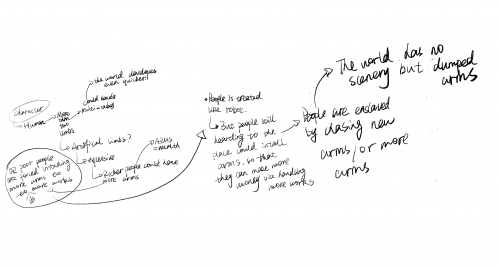 the world developes
even quicker!
could handle
multi-tasks
Character
Human
More
than
two
limbs
Artificial limbs?
expensive
Richer people could have
more arms
Arms
= wealth
OR poor people
are forced installing
more arms to
do more works
People is created
like robot.
But people still
heading to the
place could install
arms, so that
they can make more
money via handling
more works
People are enslaved
by chasing new
arms/or more
arms
The world has no
scenery but dumped
arms